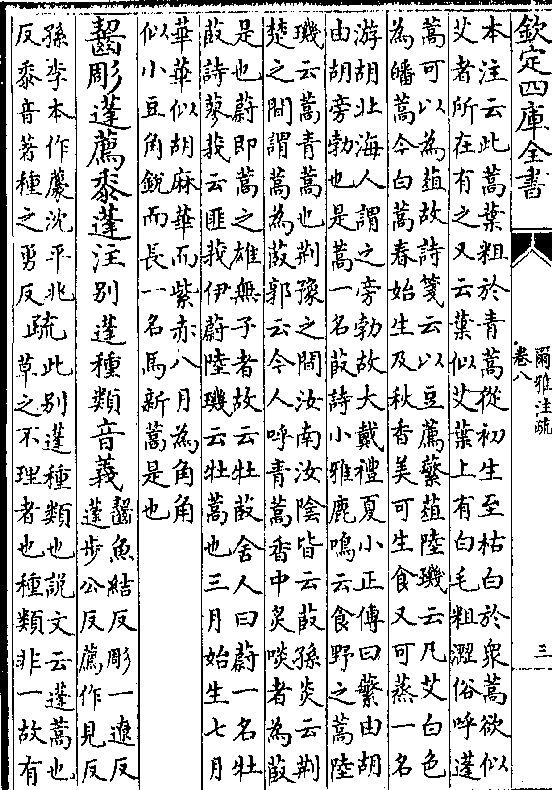 欽定四庫全書
爾雅注疏
卷八
三
本注云此蒿葉粗於青蒿從初生至枯白於衆蒿欲似
艾者所在有之又云葉似艾葉上有白毛粗澀俗呼蓬
蒿可以為葅故詩箋云以豆薦蘩葅陸璣云凡艾白色
為皤蒿今白蒿春始生及秋香美可生食又可蒸一名
游胡北海人謂之旁勃故大戴禮夏小正傳曰蘩由胡
由胡旁勃也是蒿一名菣詩小雅鹿鳴云食野之蒿陸
璣云蒿青蒿也荆豫之間汝南汝陰皆云菣孫炎云荆
楚之間謂蒿為菣郭云今人呼青蒿香中炙啖者為菣
是也蔚即蒿之雄無子者故云牡菣舍人曰蔚一名牡
菣詩蓼莪云匪莪伊蔚陸璣云牡蒿也三月始生七月
華華似胡麻華而紫赤八月為角角
似小豆角銳而長一名馬新蒿是也
齧彫蓬薦黍蓬注别蓬種類音義
齧魚結反彫一遼反
蓬步公反薦作見反
孫李本作䴡沈平兆
反黍音著種之勇反
疏
此别蓬種類也説文云蓬蒿也
草之不理者也種類非一故有